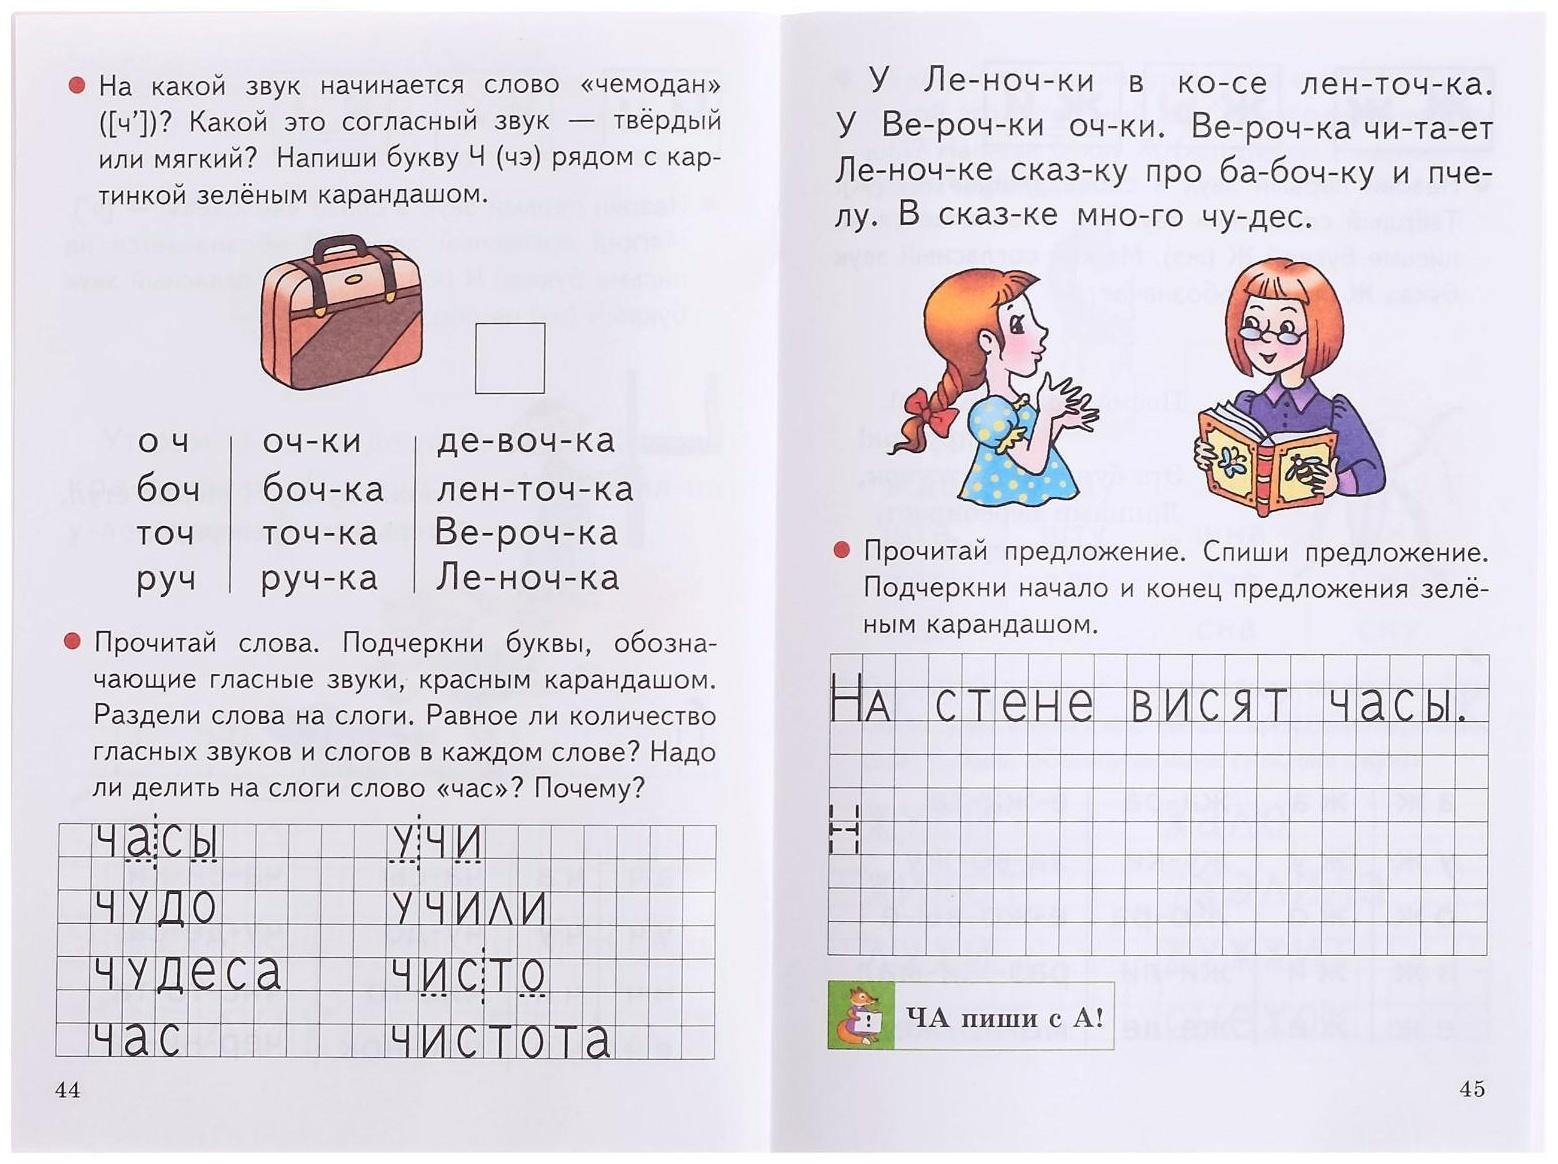 На какой звук начинается слово «чемодан»
([ч’])? Какой это согласный звук — твёрдый
или мягкий? Напиши букву Ч (чэ) рядом с кар-
тинкой зелёным карандашом.
о ч оч-ки де-воч-ка
боч боч-ка лен-точ-ка
точ точ-ка Ве-роч-ка
руч руч-ка Ле-ноч-ка
Прочитай слова. Подчеркни буквы, обозна-
чающие гласные звуки, красным карандашом.
Раздели слова на слоги. Равное ли количество
гласных звуков и слогов в каждом слове? Надо
ли делить на слоги слово «час»? Почему?
часы учи
чудо учили
чудеса чисто
час чистота
44
У Ле-ноч-ки в ко-се лен-точ-ка.
У Ве-роч-ки оч-ки. Ве-роч-ка чи-та-ет
Ле-ноч-ке сказ-ку про ба-боч-ку и пче-
лу. В сказ-ке мно-го чу-дес.
Прочитай предложение. Спиши предложение.
Подчеркни начало и конец предложения зелё-
ным карандашом.
На стене висят часы.
Н
! ЧА пиши с А!
45